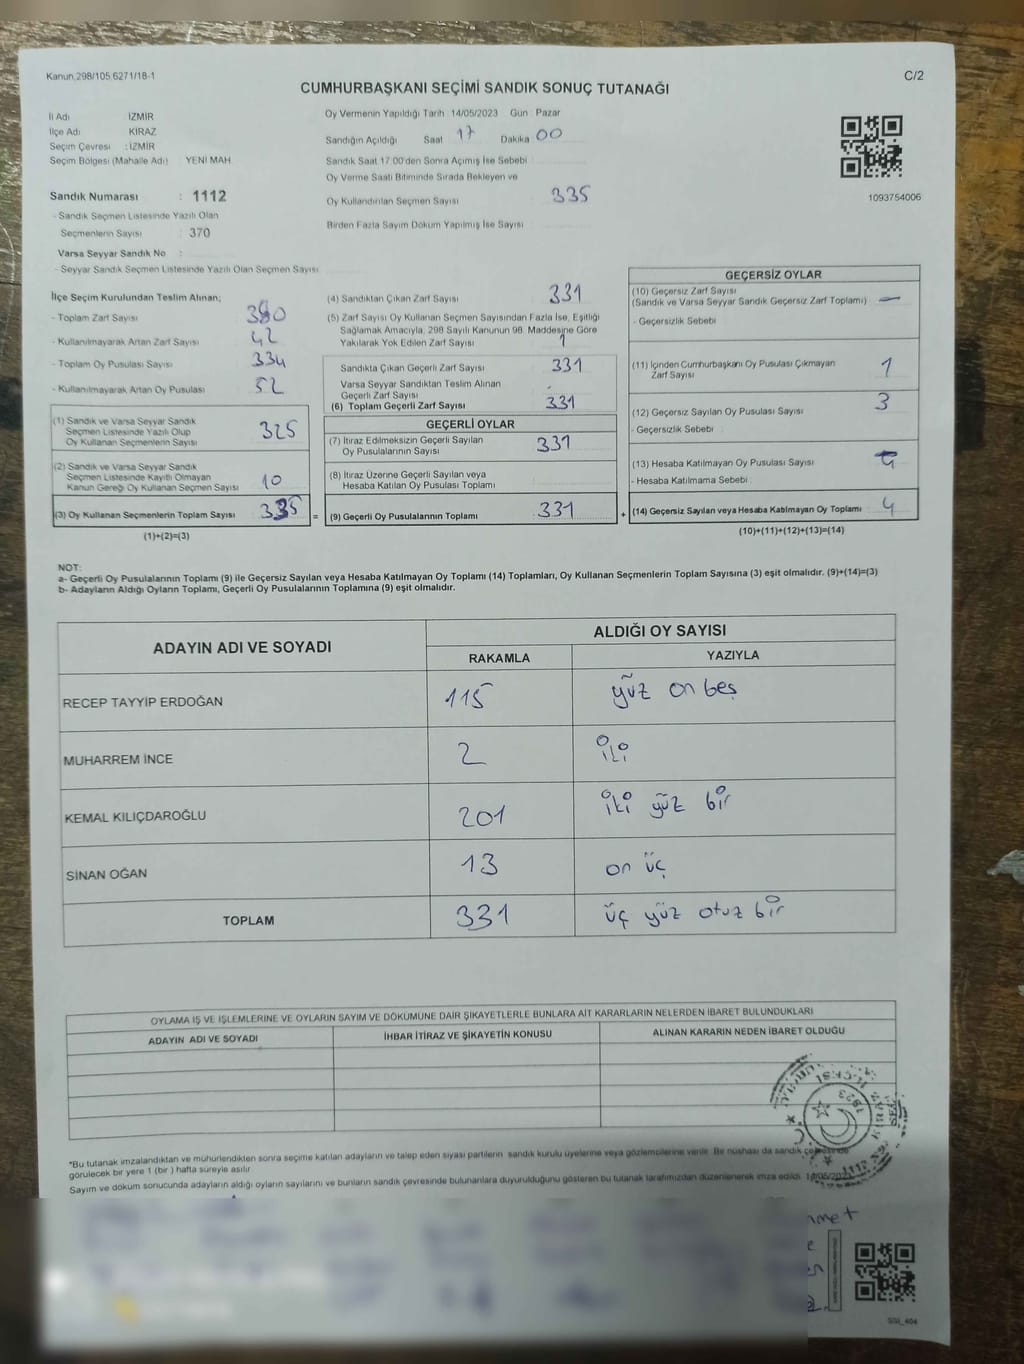 Kanun.298/105.6271/18-1
C/2
CUMHURBAŞKANI SEÇİMİ SANDIK SONUÇ TUTANAĞI
İl Adı İZMİR
İlçe Adı KİRAZ
Seçim Çevresi : İZMİR
Seçim Bölgesi (Mahalle Adı) YENİ MAH
Sandık Numarası : 1112
- Sandık Seçmen Listesinde Yazılı Olan
Seçmenlerin Sayısı : 370
Varsa Seyyar Sandık No :
- Seyyar Sandık Seçmen Listesinde Yazılı Olan Seçmen Sayısı
Oy Vermenin Yapıldığı Tarih 14/05/2023 Gün Pazar
Sandığın Açıldığı Saat 17 Dakika 00
Sandık Saat 17:00'den Sonra Açımış İse Sebebi
Oy Verme Saati Bitiminde Sırada Bekleyen ve
Oy Kullandırılan Seçmen Sayısı 335
Birden Fazla Sayım Döküm Yapılmış İse Sayısı
1093754006
İlçe Seçim Kurulundan Teslim Alınan;
- Toplam Zarf Sayısı 380
- Kullanılmayarak Artan Zarf Sayısı 42
- Toplam Oy Pusulası Sayısı 334
- Kullanılmayarak Artan Oy Pusulası 52
(1) Sandık ve Varsa Seyyar Sandık
Seçmen Listesinde Yazılı Olup
Oy Kullanan Seçmenlerin Sayısı 325
(2) Sandık ve Varsa Seyyar Sandık
Seçmen Listesinde Kayıtlı Olmayan
Kanun Gereği Oy Kullanan Seçmen Sayısı 10
(3) Oy Kullanan Seçmenlerin Toplam Sayısı 335
(1)+(2)=(3)
=
(4) Sandıktan Çıkan Zarf Sayısı 331
(5) Zarf Sayısı Oy Kullanan Seçmen Sayısından Fazla İse, Eşitliği
Sağlamak Amacıyla, 298 Sayılı Kanunun 98. Maddesine Göre
Yakılarak Yok Edilen Zarf Sayısı 1
Sandıkta Çıkan Geçerli Zarf Sayısı 331
Varsa Seyyar Sandıktan Teslim Alınan
Geçerli Zarf Sayısı -
(6) Toplam Geçerli Zarf Sayısı 331
GEÇERLİ OYLAR
(7) İtiraz Edilmeksizin Geçerli Sayılan
Oy Pusulalarının Sayısı 331
(8) İtiraz Üzerine Geçerli Sayılan veya
Hesaba Katılan Oy Pusulası Toplamı
(9) Geçerli Oy Pusulalarının Toplamı 331
+
GEÇERSİZ OYLAR
(10) Geçersiz Zarf Sayısı
(Sandık ve Varsa Seyyar Sandık Geçersiz Zarf Toplamı) -
- Geçersizlik Sebebi
(11) İçinden Cumhurbaşkanı Oy Pusulası Çıkmayan
Zarf Sayısı 1
(12) Geçersiz Sayılan Oy Pusulası Sayısı 3
- Geçersizlik Sebebi
(13) Hesaba Katılmayan Oy Pusulası Sayısı
- Hesaba Katılmama Sebebi
(14) Geçersiz Sayılan veya Hesaba Katılmayan Oy Toplamı 4
(10)+(11)+(12)+(13)=(14)
NOT:
a- Geçerli Oy Pusulalarının Toplamı (9) ile Geçersiz Sayılan veya Hesaba Katılmayan Oy Toplamı (14) Toplamları, Oy Kullanan Seçmenlerin Toplam Sayısına (3) eşit olmalıdır. (9)+(14)=(3)
b- Adayların Aldığı Oyların Toplamı, Geçerli Oy Pusulalarının Toplamına (9) eşit olmalıdır.
ADAYIN ADI VE SOYADI ALDIĞI OY SAYISI
RAKAMLA YAZIYLA
RECEP TAYYİP ERDOĞAN 115 yüz on beş
MUHARREM İNCE 2 iki
KEMAL KILIÇDAROĞLU 201 iki yüz bir
SİNAN OĞAN 13 on üç
TOPLAM 331 üç yüz otuz bir
OYLAMA İŞ VE İŞLEMLERİNE VE OYLARIN SAYIM VE DÖKÜMÜNE DAİR ŞİKAYETLERLE BUNLARA AİT KARARLARIN NELERDEN İBARET BULUNDUKLARI
ADAYIN ADI VE SOYADI İHBAR İTİRAZ VE ŞİKAYETİN KONUSU ALINAN KARARIN NEDEN İBARET OLDUĞU
1923
*Bu tutanak imzalandıktan ve mühürlendikten sonra seçime katılan adayların ve talep eden siyasi partilerin sandık kurulu üyelerine veya gözlemcilerine verilir. Bir nüshası da sandık çevresinde
görülecek bir yere 1 (bir) hafta süreyle asılır
Sayım ve döküm sonucunda adayların aldığı oyların sayılarını ve bunların sandık çevresinde bulunanlara duyurulduğunu gösteren bu tutanak tarafımızdan düzenlenerek imza edildi.